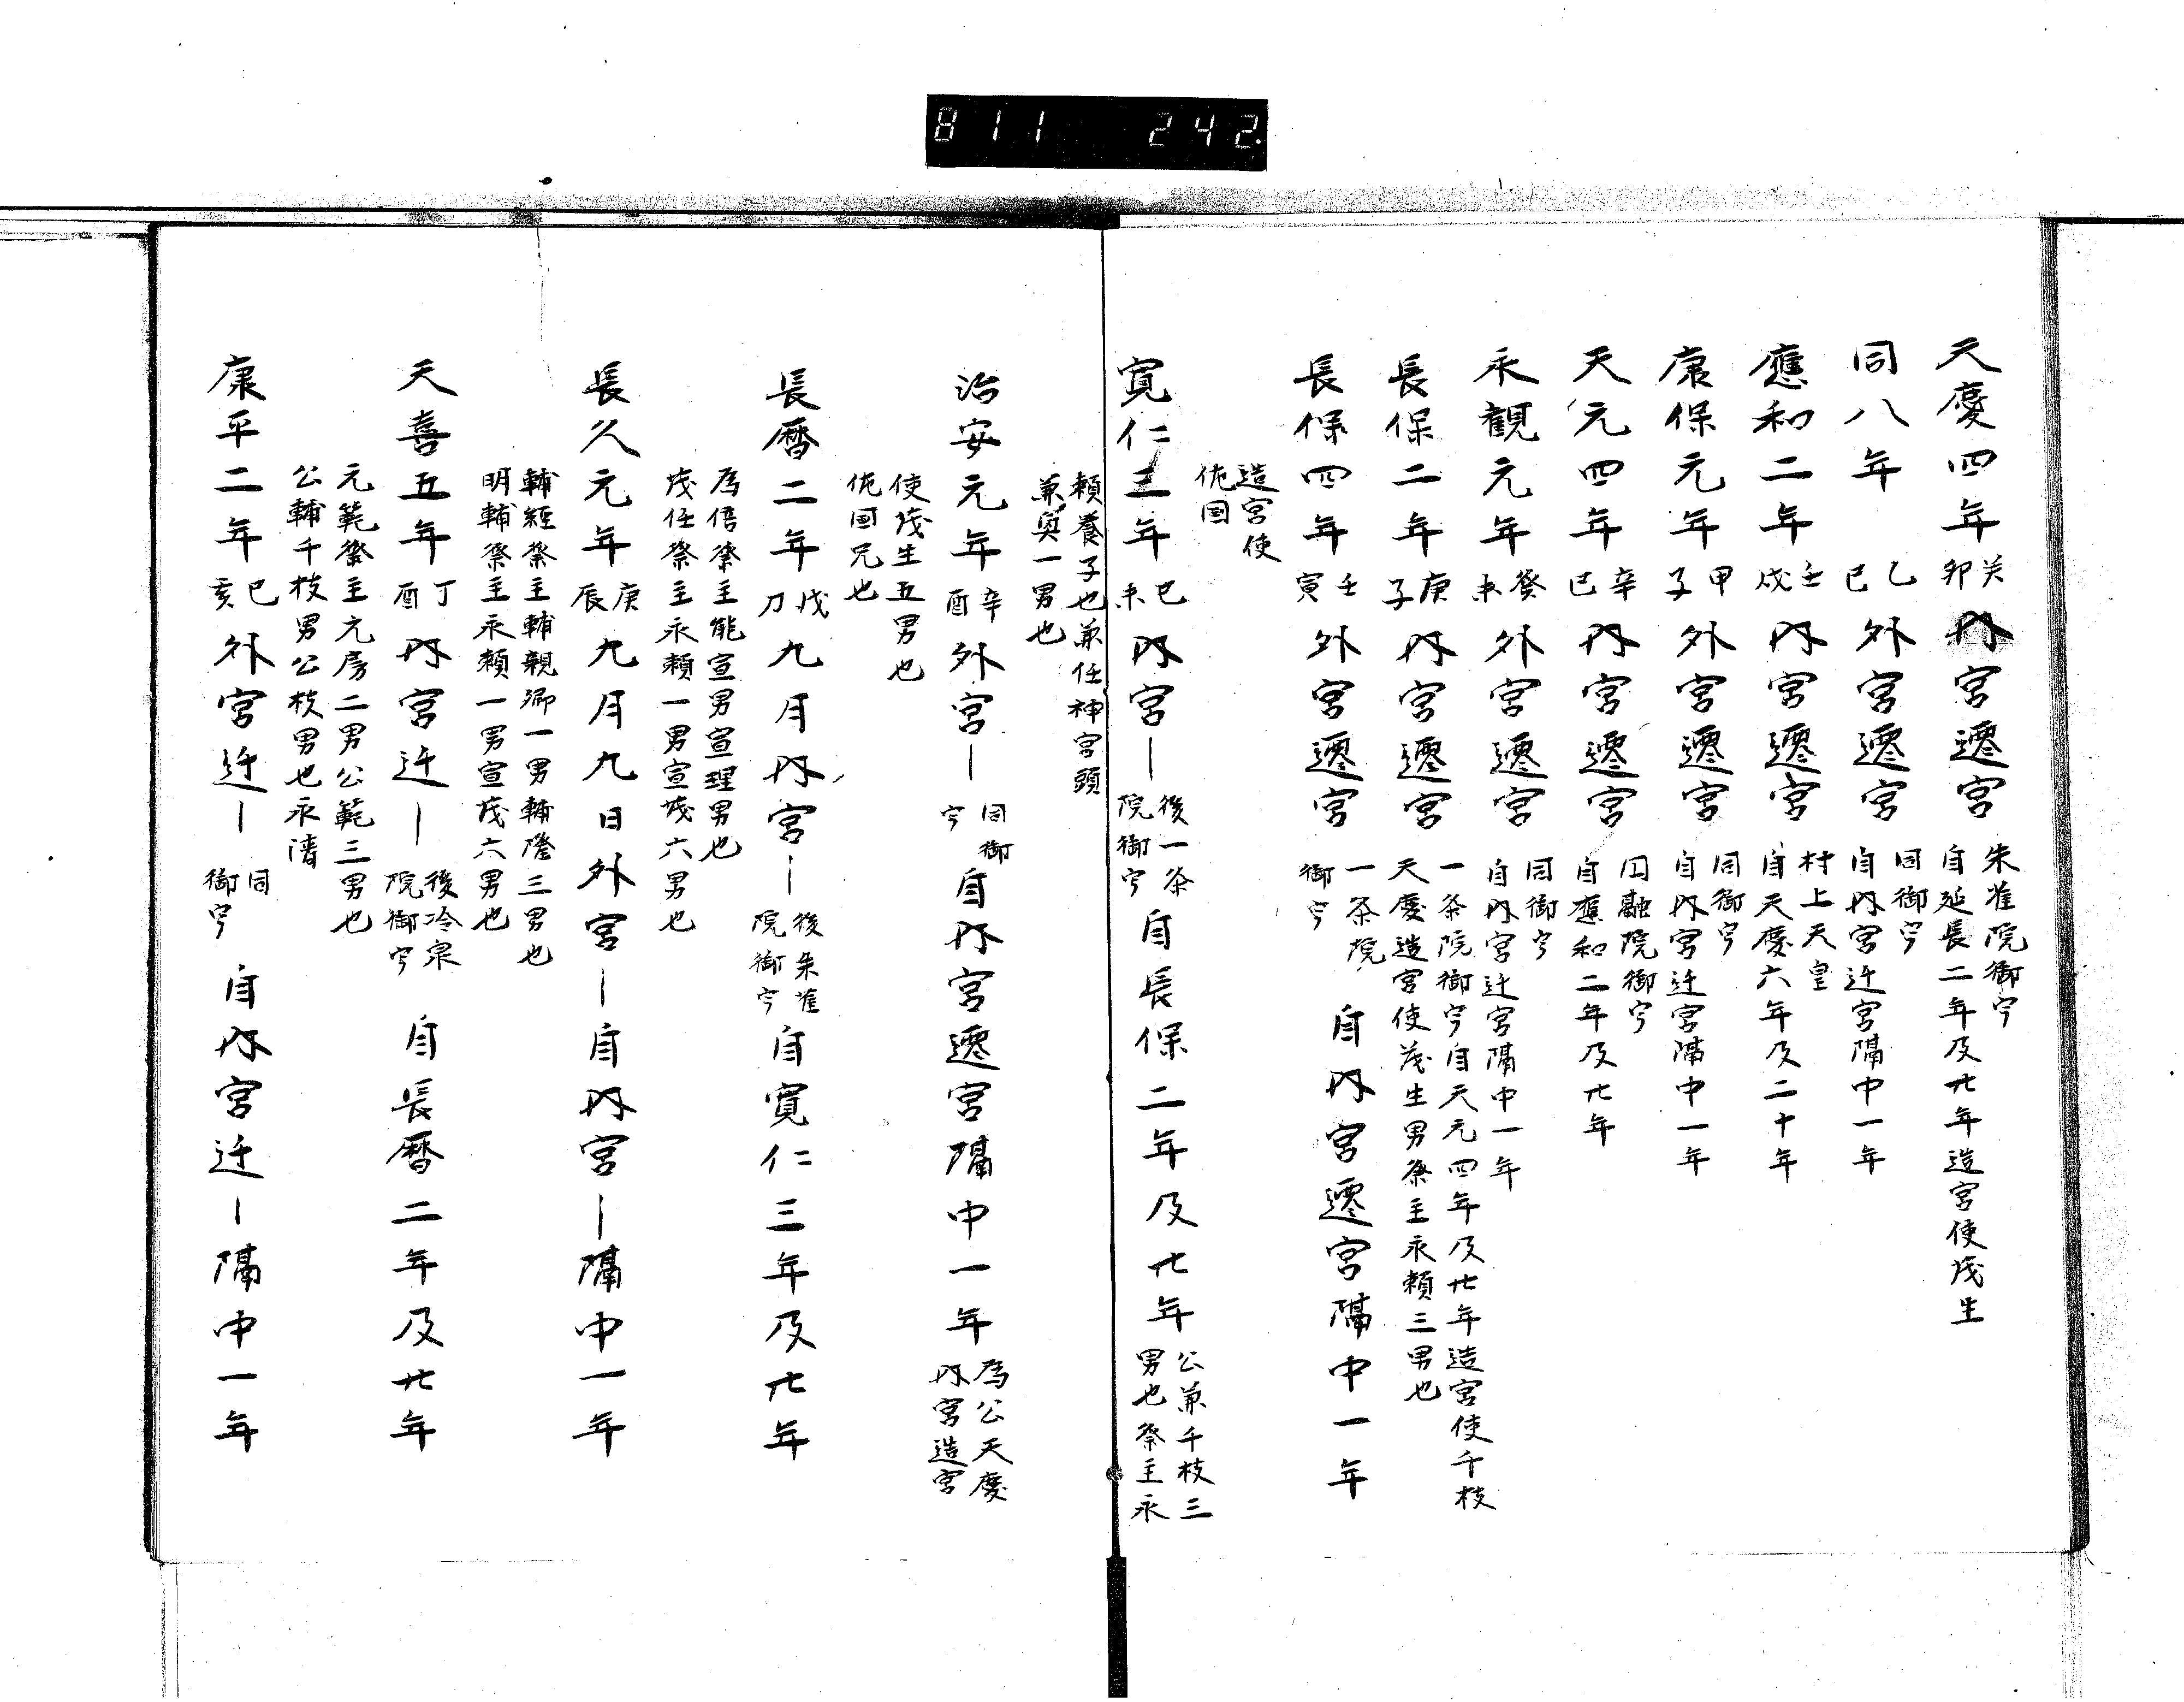 811 242
天慶四年 癸卯 内宮遷宮 朱雀院御宇 自延長二年及廿年造宮使茂生
同八年 乙巳 外宮遷宮 同御宇 自内宮迁宮隔中一年
應和二年 壬戌 内宮遷宮 村上天皇 自天慶六年及二十年
康保元年 甲子 外宮遷宮 同御宇 自内宮迁宮隔中一年
天元四年 辛巳 内宮遷宮 円融院御宇 自應和二年及廿年
永觀元年 癸未 外宮遷宮 同御宇 自内宮迁宮隔中一年
長保二年 庚子 内宮遷宮 一条院御宇自天元四年及廿年造宮使千枝 天慶造宮使茂生男祭主永頼三男也
長保四年 壬寅 外宮遷宮 一条院御宇 自内宮遷宮隔中一年
造宮使
佐国
寛仁三年 己未 内宮― 後一条院御宇 自長保二年及廿年 公兼千枝三男也祭主永
頼養子也兼任神宮頭
兼奥一男也
治安元年 辛酉 外宮― 同御宇 自内宮遷宮隔中一年 為公天慶内宮造宮
使茂生五男也
佐国兄也
長暦二年 戊刀 九月内宮― 後朱雀院御宇 自寛仁三年及廿年
為信祭主能宣男宣理男也
茂任祭主永頼一男宣茂六男也
長久元年 庚辰 九月九日外宮―自内宮―隔中一年
輔経祭主輔親卿一男輔隆三男也
明輔祭主永頼一男宣茂六男也
天喜五年 丁酉 内宮迁― 後冷泉院御宇 自長暦二年及廿年
元範祭主元房二男公範三男也
公輔千枝男公枝男也永清
康平二年 己亥 外宮迁― 同御宇 自内宮迁―隔中一年